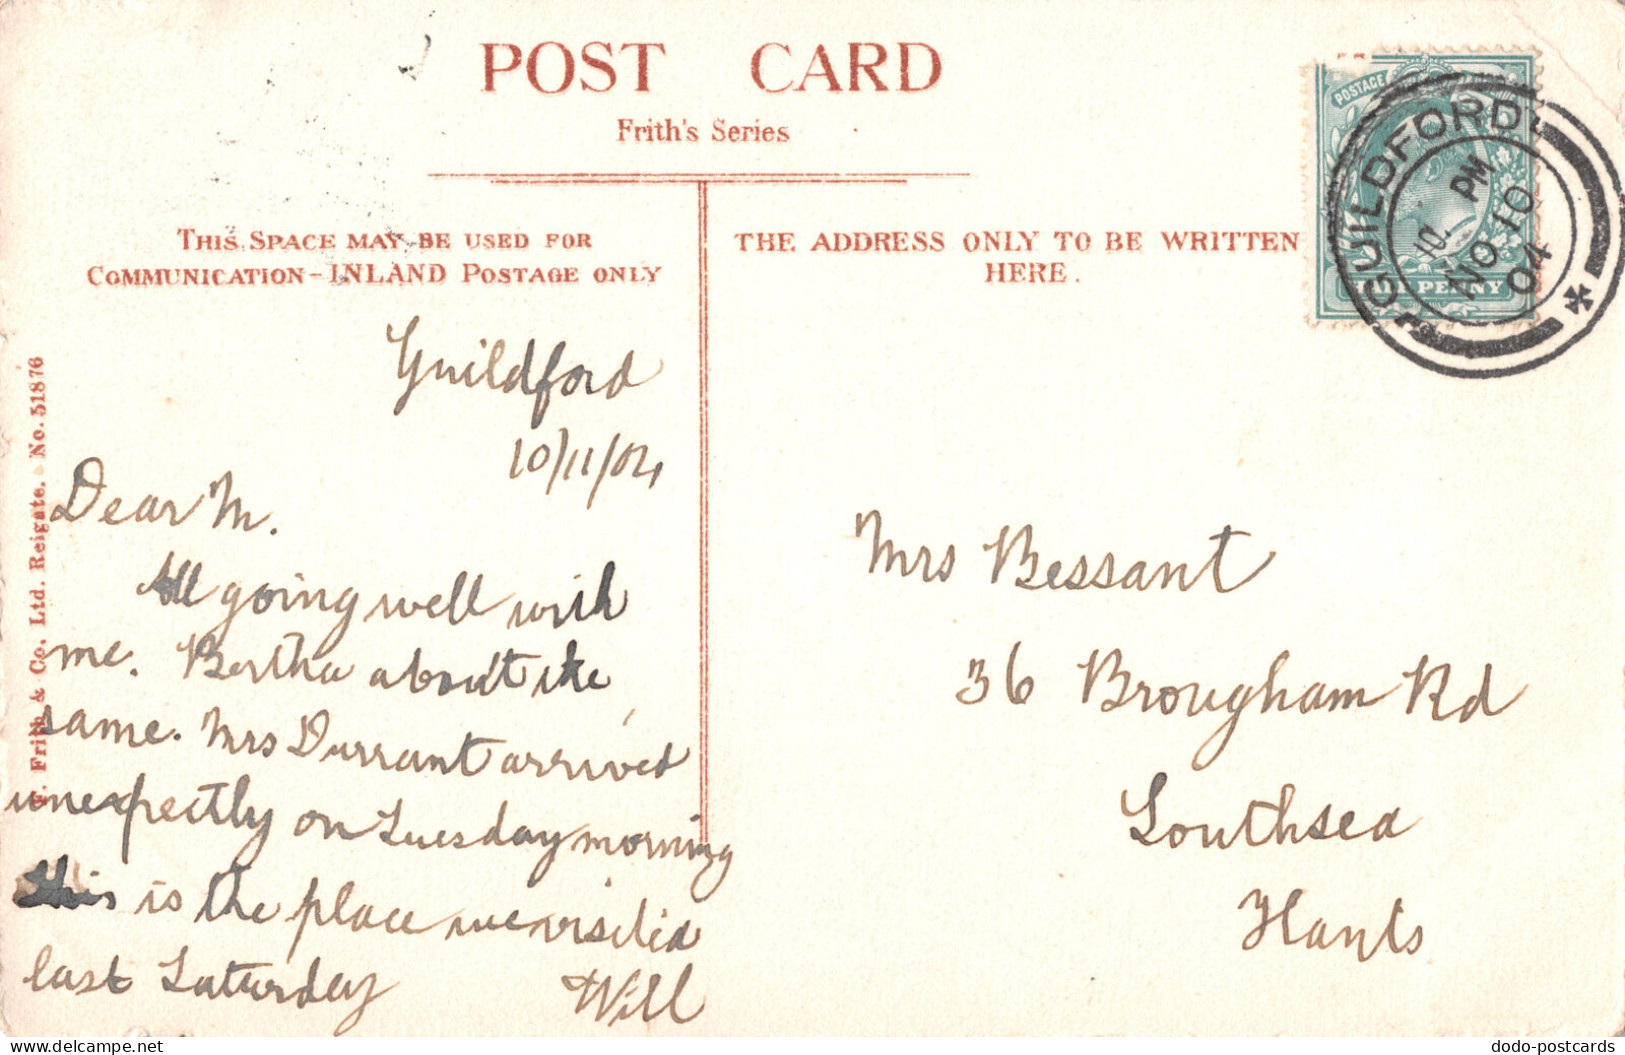 POST CARD
Frith's Series
THIS SPACE MAY BE USED FOR
COMMUNICATION - INLAND POSTAGE ONLY
THE ADDRESS ONLY TO BE WRITTEN
HERE.
POSTAGE
PENNY
GUILDFORD
10. PM
NO 10
04
F. Frith & Co. Ltd. Reigate. No. 51876
Guildford
10/11/04
Dear M.
All going well with
me. Bertha about the
same. Mrs Durrant arrived
unexpectly on Tuesday morning
this is the place we visited
last Saturday
Will
Mrs Bessant
36 Brougham Rd
Southsea
Hants
dodo-postcards
www.delcampe.net